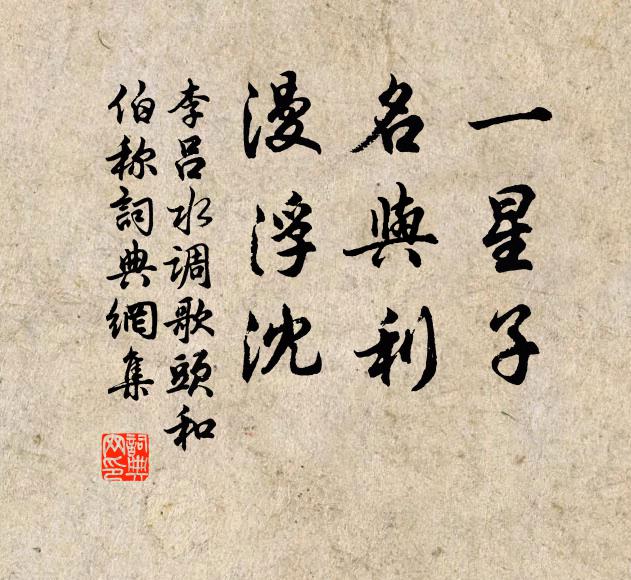 一星子
名與利
漫浮沈
李呂水调歌頭和
伯称詞典網集
詞典网印